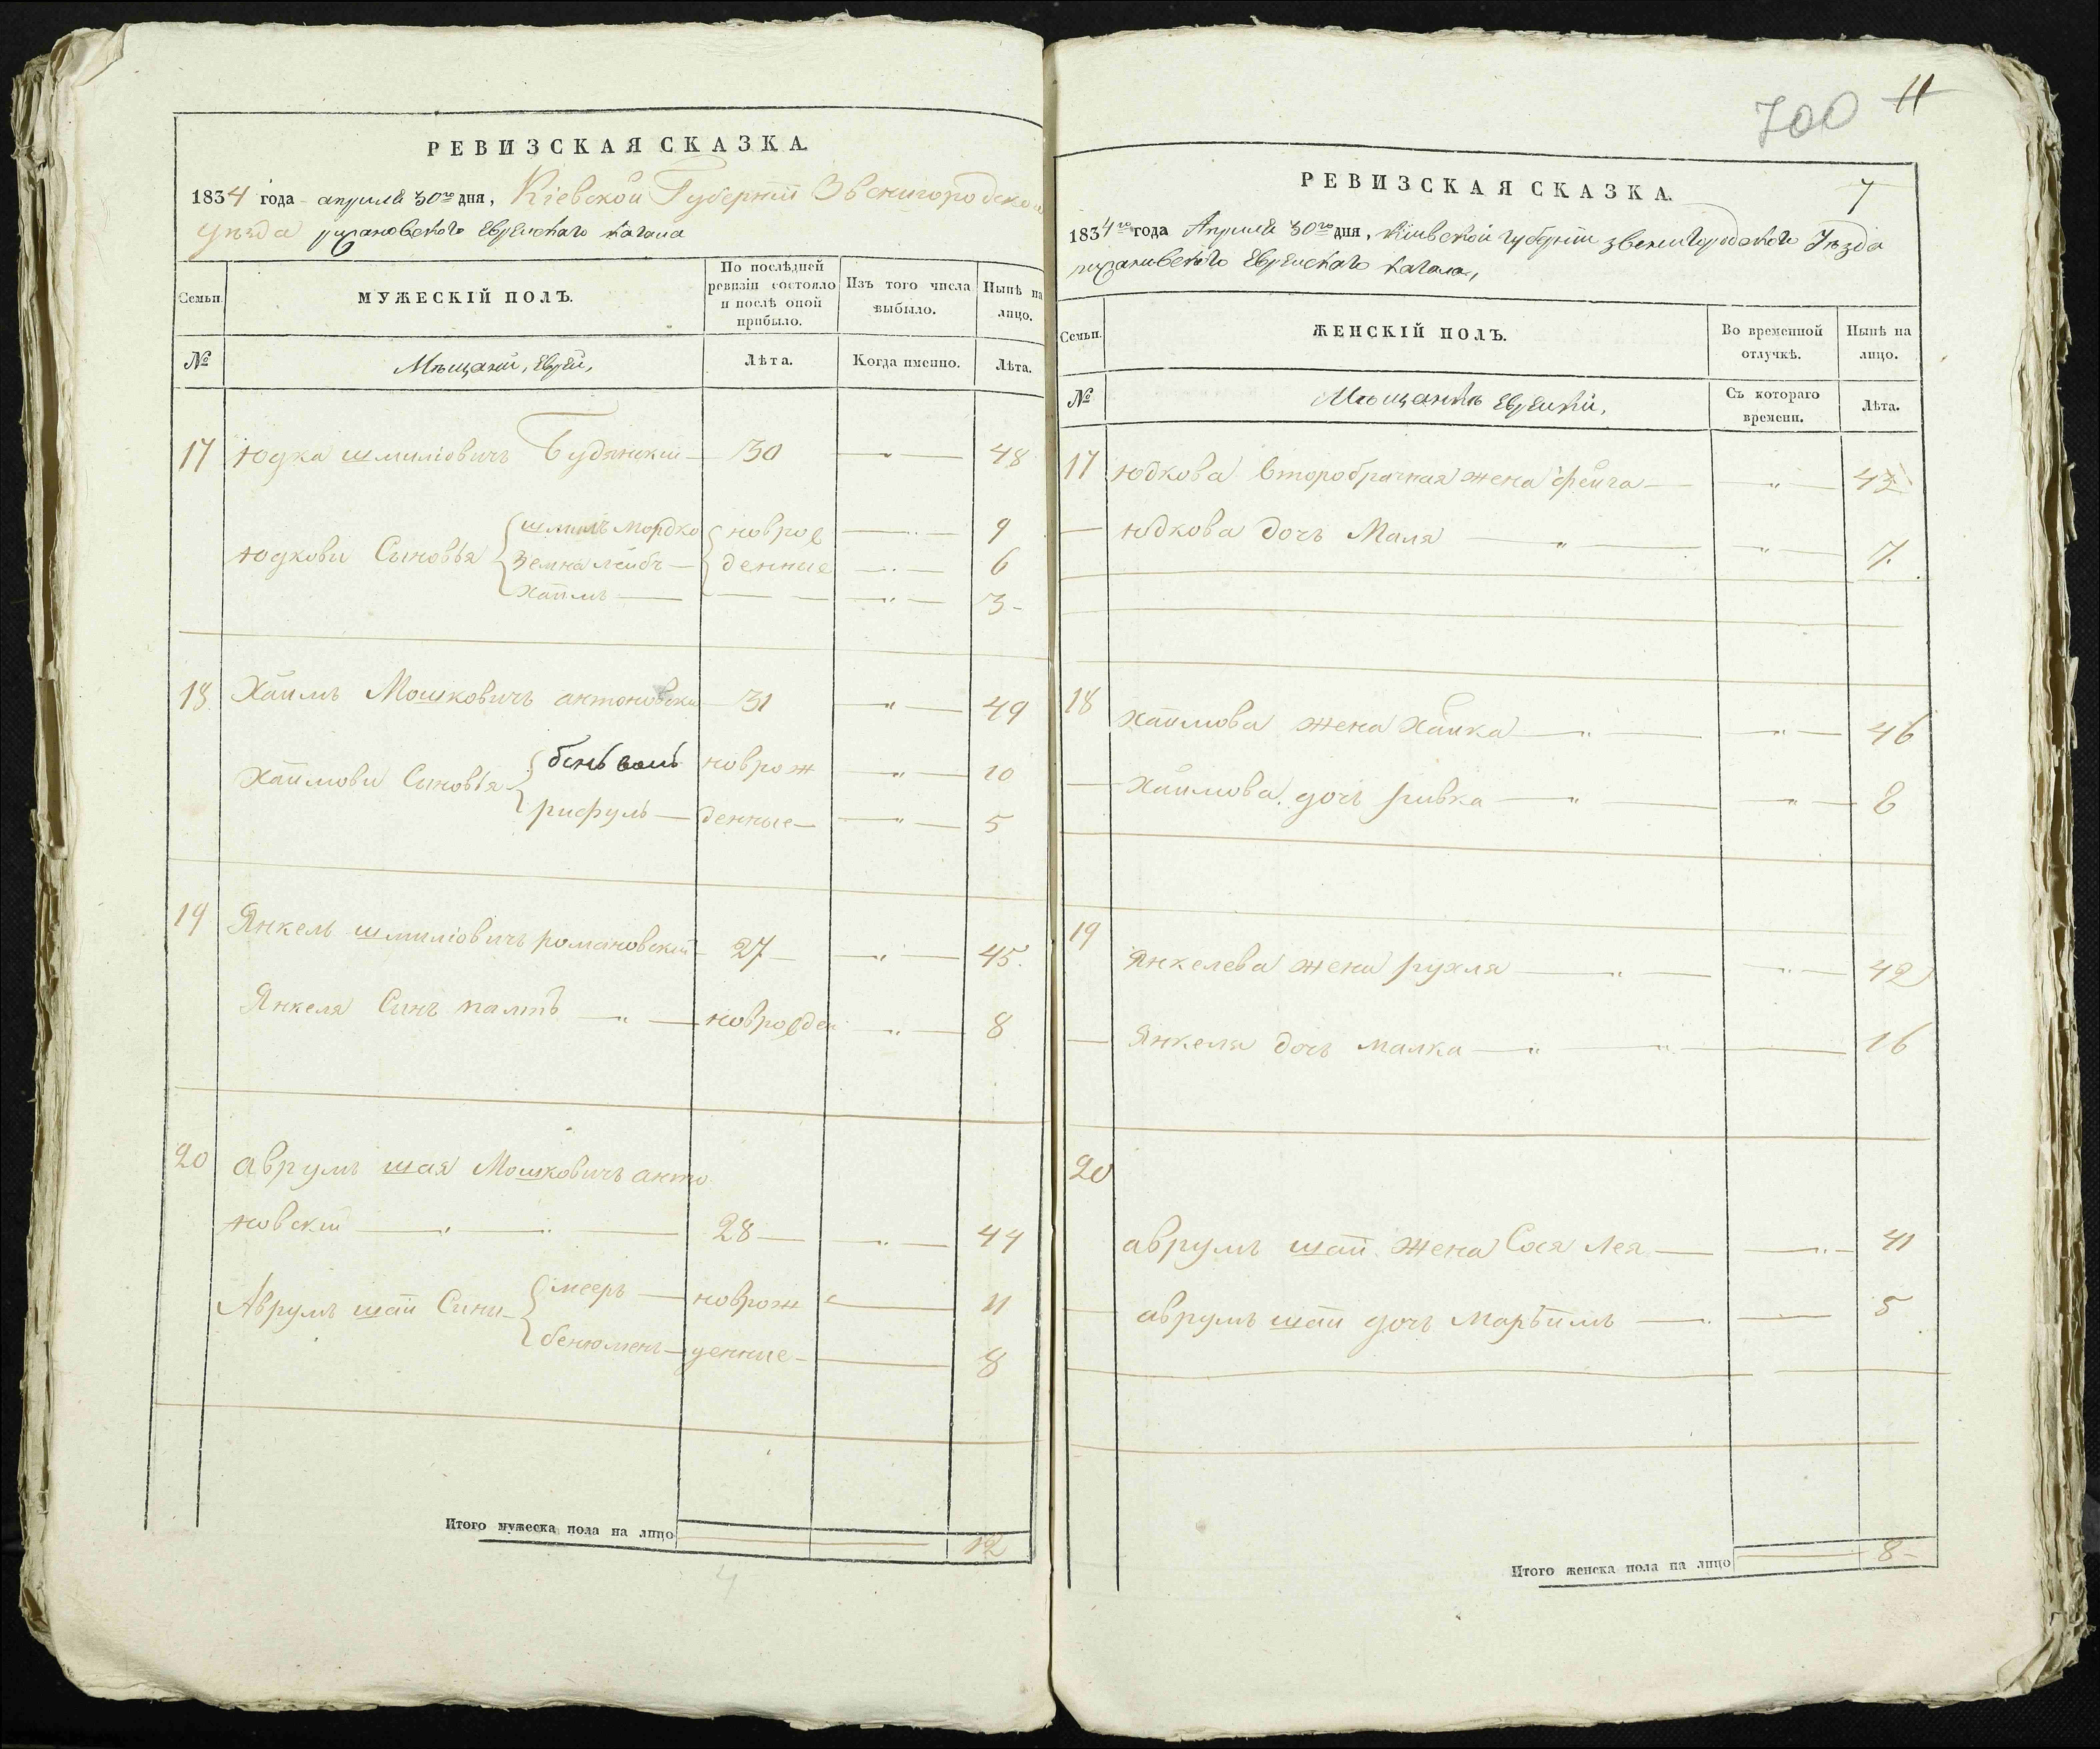 РЕВИЗСКАЯ СКАЗКА.
1834 года апреля 30го дня, Кіевской Губерніи Звенигородского
уѣзда рижановского Еврейскаго кагала
Семьи.
МУЖЕСКІЙ ПОЛЪ.
По послѣдней ревизіи состояло и послѣ оной прибыло.
Изъ того числа выбыло.
Нынѣ на лицо.
№
Мѣщани, Евреи,
Лѣта.
Когда именно.
Лѣта.
17 Юдка шмиліовичъ Будянский 30 — " — 48
шмиль мордко новрож — 9
Юдкови Сыновъя земна лейбъ — денние — 6
Хаимъ — 3
18 Хаимъ Мошковичъ антоновски 31 — " — 49
новрож — " — 10
Хаимови Сыновъя
рифулъ — денные — " — 5
19 Янкель шмиліовичъ романовский 27 — " — 45.
Янкеля Синъ палтъ — " — новрожден — " — 8
20 аврумъ шая Мошковичъ анто
новский — " — " — 28 — " — 44
меерь — новрож — 11
Аврумъ шаи Сини
бенюменъ — денние — 8
Итого мужеска пола на лицо
12
4
700 11
РЕВИЗСКАЯ СКАЗКА.
7
1834го года Апреля 30го дня, Кіивской губерніи звенигородского Уѣзда
рижановского Еврейскаго кагала,
Семьи.
ЖЕНСКІЙ ПОЛЪ.
Во временной отлучкѣ.
Нынѣ на лицо.
№
Мѣщанкѣ Еврейки,
Съ котораго времени.
Лѣта.
17 Юдкова второбрачная жена фейга — " — 42
— Юдкова дочъ Маля — " — " — 7.
18 Хаимова жена Хаика — " — " — 46
— Хаимова дочъ ривка — " — " — 8
19 Янкелева жена рухля — " — " — 42
— Янкеля дочъ малка — " — " — 16
20
аврумъ шаи жена Сося Лея — " — 41
— аврумъ шаи дочъ Марьимъ — 5
Итого женска пола на лицо
8